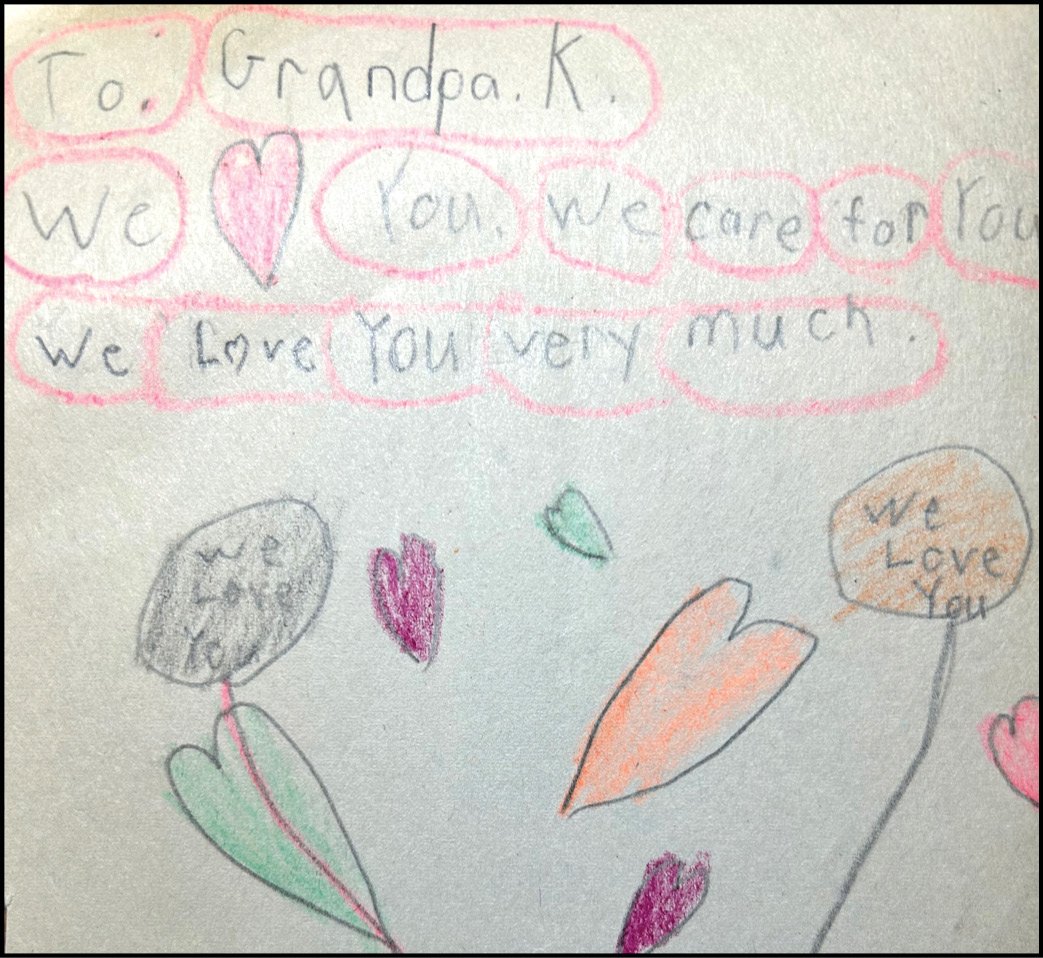 To: Grandpa. K.
We ♥ You. We care for You
We Love You very much.
We
Love
You
We
Love
You